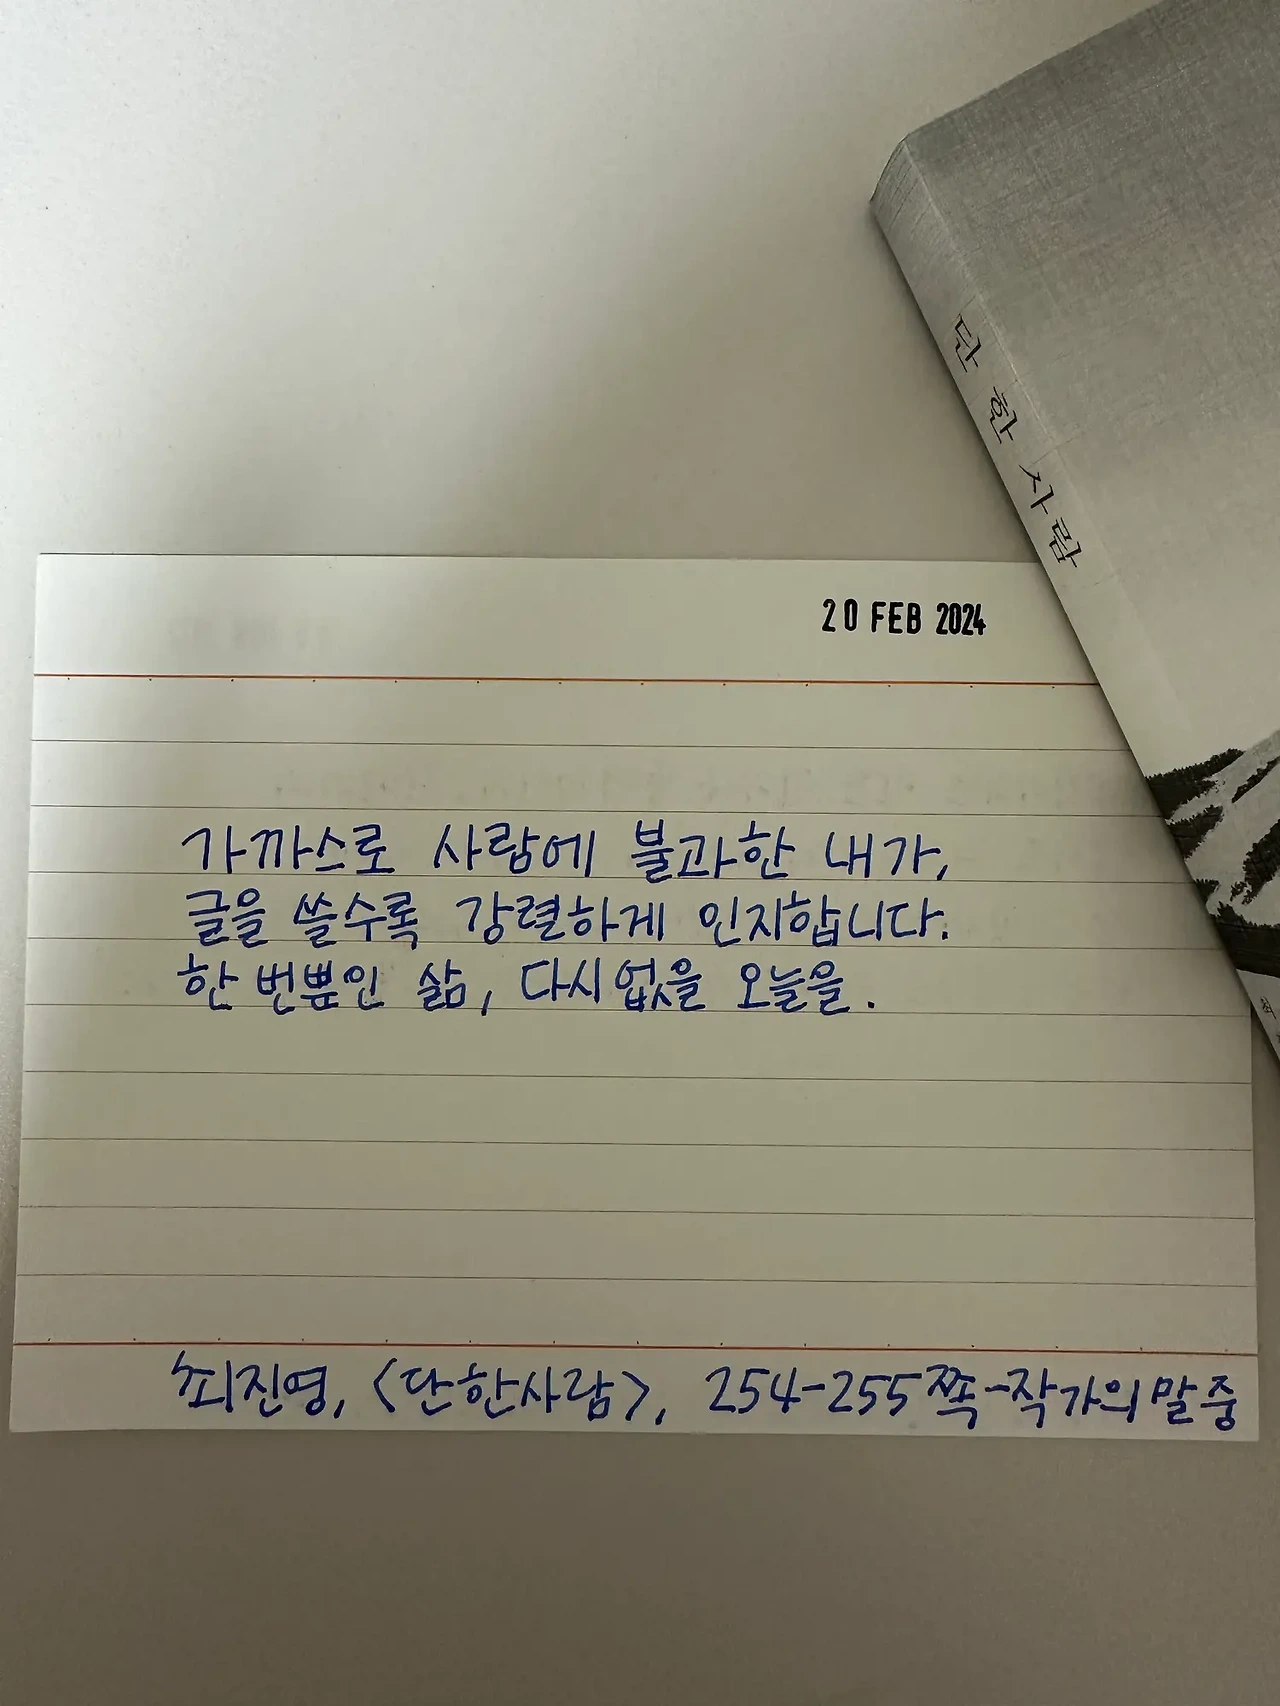 단 한 사람
20 FEB 2024
가까스로 사람에 불과한 내가,
글을 쓸수록 강렬하게 인지합니다.
한 번뿐인 삶, 다시 없을 오늘을.
최진영, <단 한 사람>, 254-255쪽-작가의 말 중